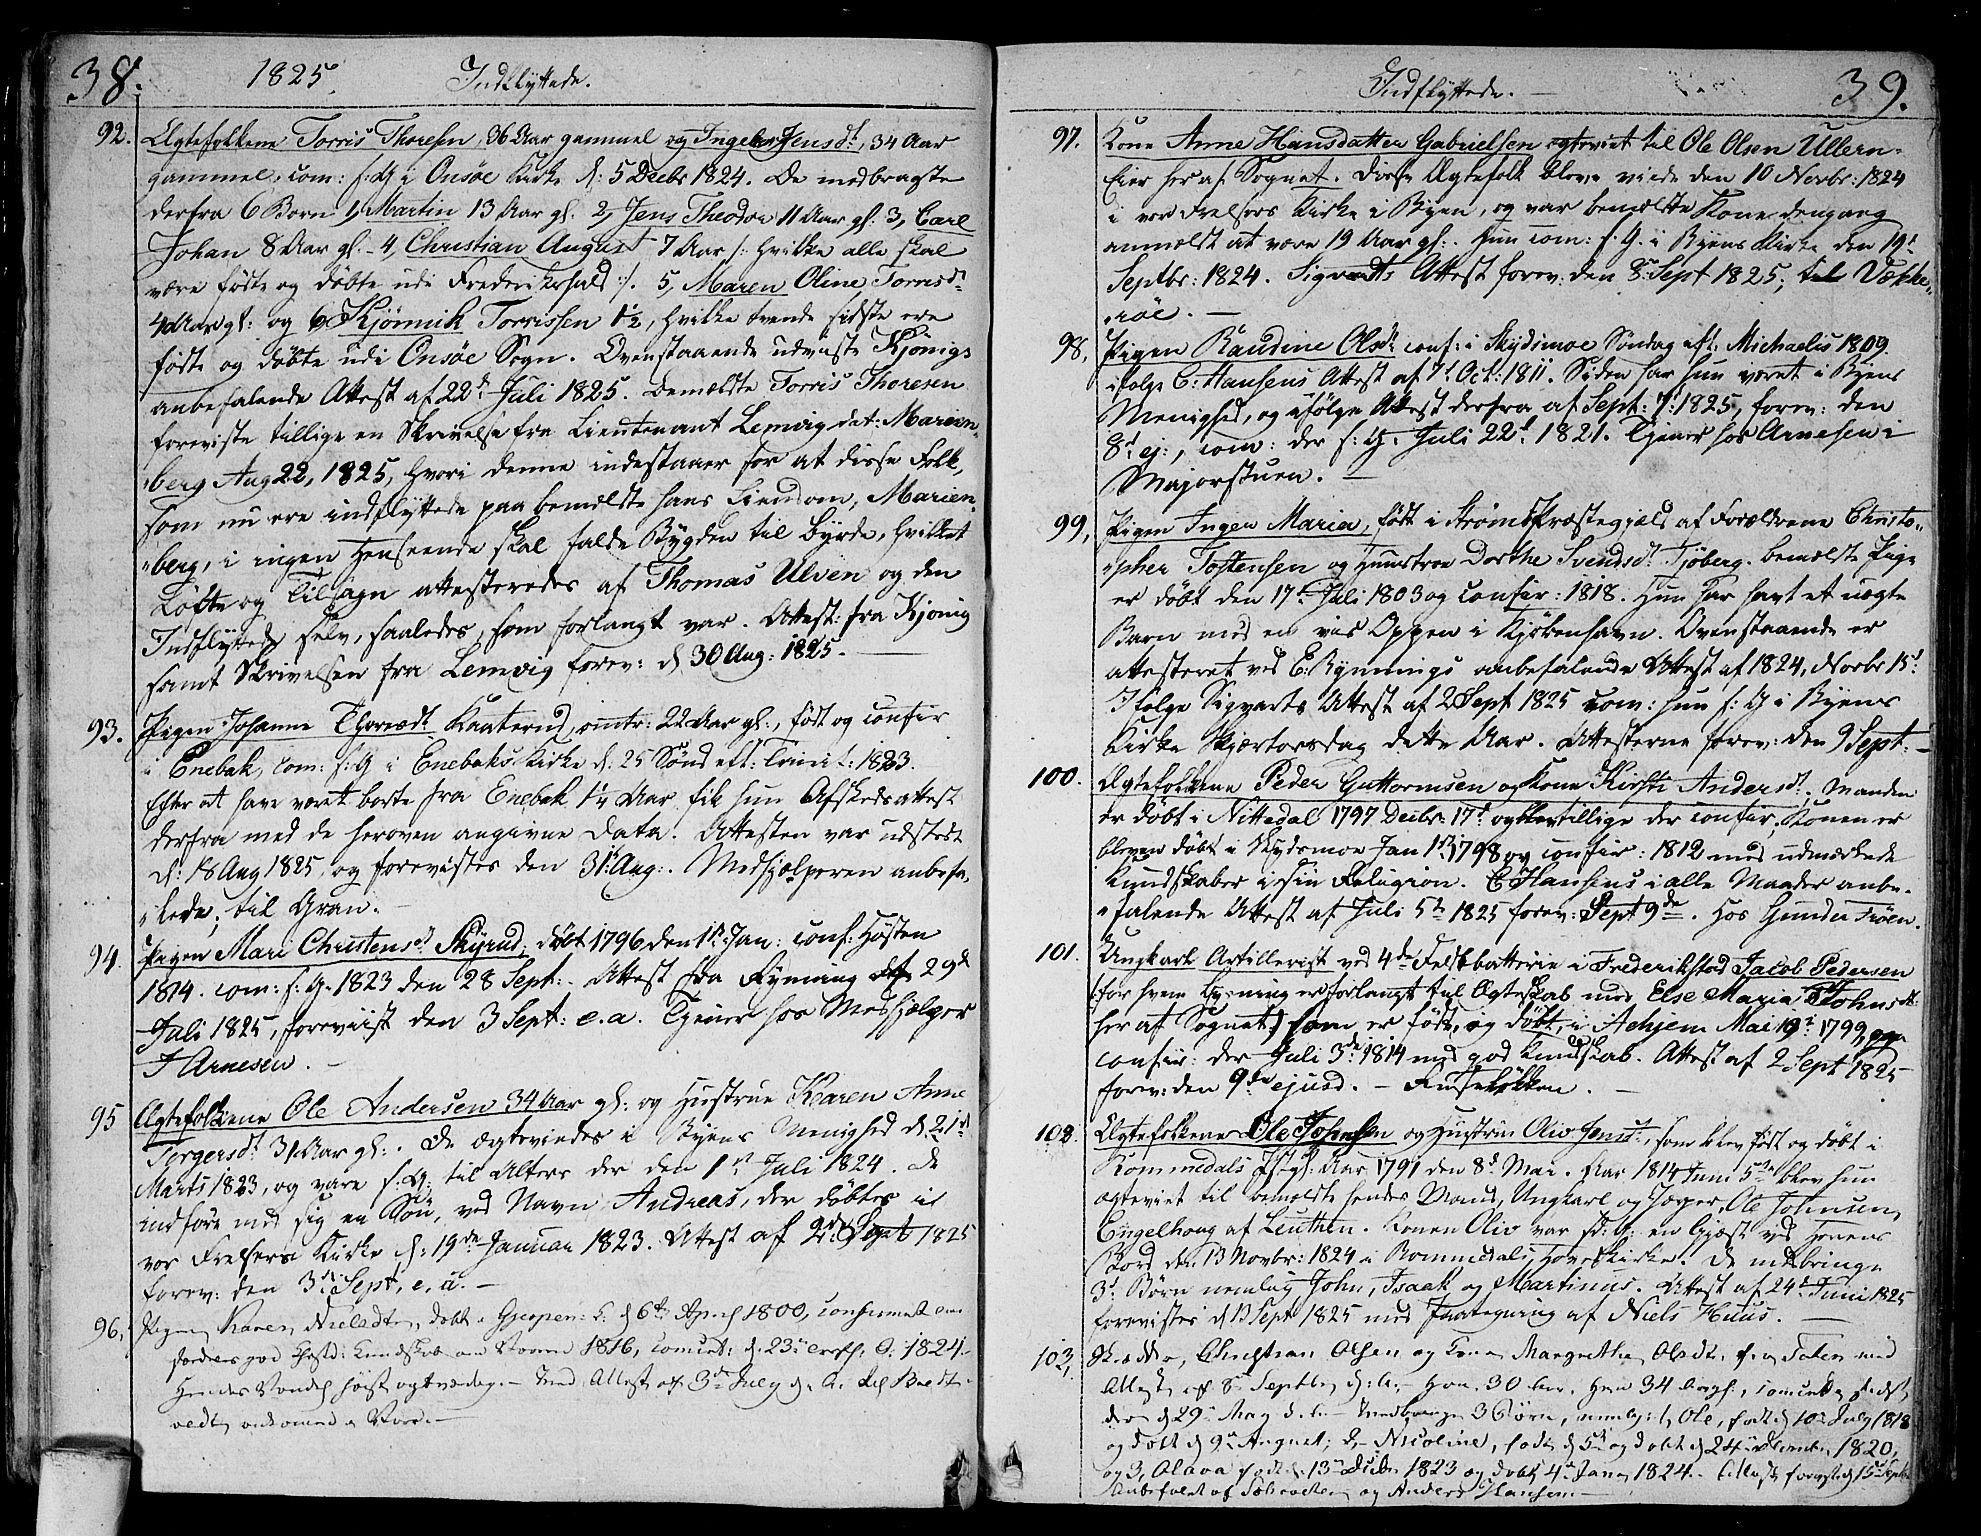 38.
1825.
Indflyttede.
92. Ægtefolkene Torris Thoresen, 36 Aar gammel og Ingebor Jensdt, 34 Aar
gammel, com: s: G i Onsøe Kirke d: 5 Decbr 1824. De medbragte
derfra 6 Børn 1, Martin 13 Aar gl: 2, Jens Theodor 11 Aar gl: 3, Carl
Johan 8 Aar gl. 4, Christian August 7 Aar /: hvilke alle skal
være fødte og døbte udi Frederikshald :/. 5, Maren Oline Torrisdr
4 Aar gl: og 6, Kjønnik Torrissen 1½, hvilke tvende sidste ere
fødte og døbte udi Onsøe Sogn. Ovenstaaende udviste Kjønigs
anbefalende Attest af 22de Juli 1825. Bemældte Torris Thoresen
foreviste tillige en Skrivelse fra Lieutenant Lemvig dat: Marien-
berg Aug 22, 1825, hvori denne indestaaer for at disse Folk,
som nu ere indflyttede paa bemældte hans Eiendom, Marien-
berg, i ingen Henseende skal falde Bygden til Byrde, hvilket
Løfte og Tilsagn attesteredes af Thomas Ulven og den
Indflyttede selv, saaledes, som forlangt var. Attest: fra Kjønig
samt Skrivelsen fra Lemvig forev: d 30 Aug: 1825.
93. Pigen Johanne Thoresdt Kaaterud, omtr: 22 Aar gl:, født og confir
i Enebak, com: s: G i Enebaks Kirke d: 25 Sønd eft: Trinit: 1823.
Efter at have været borte fra Enebak 1¼ Aar fik hun Afskedsattest
derfra med de heroven angivne Data. Attesten var udstedt
d: 18 Aug 1825, og forevistes den 31 Aug:. Medhjælperen anbefa-
lede; til Gran.
94. Pigen Mari Christensdt Skyrud; døbt 1796 den 1st Jan: conf: Høsten
1814. com: s: G. 1823 den 28 Sept:. Attest fra Rynning 29d
Juli 1825, foreviist den 3 Sept: e. a. Tjener hos Medhjælper
J Arnesen.
95 Ægtefolkene Ole Andersen 34 Aar gl: og Hustrue Karen Anne
Torgersdt 31 Aar gl:. De ægteviedes i Byens Menighed d. 21d
Marts 1823, og vare s: G: til Alters der den 1st Juli 1824. De
indføre med sig en Søn, ved Navn Andreas, der døbtes i
vor Frelsers Kirke d: 19de Januar 1823. Attest af 2d Sept 1825
forev: den 3d Sept, e. a.
96, Pigen Karen Nielsdtr, døbt i d 6te April 1800, confirmeret
god Christd: Kundskab om Vaaren 1816, comunic: d. 23
Med Attest af 3de July
39.
Indflyttede.
97. Kone Anne Hansdatter Gabrielsen ægteviet til Ole Olsen Ullern-
Eier her af Sognet. Disse Ægtefolk bleve viede den 10 Novbr: 1824
i vor Frelsers Kirke i Byen, og var bemeldte Kone dengang
anmældt at være 19 Aar gl:. Hun com: s. G. i Byens Kirke den 19d
Septbr: 1824. Sigvardts Attest forev: den 8 Sept 1825; til Vække-
røe.
98, Pigen Randine Olsdt: conf: i Skydsmoe Søndag eft: Michaelis 1809.
ifølge C: Hansens Attest af 7d Oct: 1811. Siden har hun været i Byens
Menighed, og ifølge Attest derfra af Sept: 7: 1825, forev: den
8d ej:, com: der s: G. Juli 22d 1821. Tjener hos Arnesen i
Majorstuen.
99, Pigen Inger Maria, født i Strøms Præstegjæld af Forældrene Christo-
pher Tostensen og Hustrue Dorthe Svendsdt Tjøberg. bemældte Pige
er døbt den 17d Juli 1803 og confir: 1818. Hun har havt et uægte
Barn med en vis Oppen i Kjøbenhavn. Ovenstaaende er
attesteret ved E. Rynnings anbefalende Attest af 1824, Novbr 15d
Ifølge Sigvarts Attest af 2 Sept 1825 com: hun s: G i Byens
Kirke Skjærtorsdag dette Aar. Attesterne forev: den 9 Sept:
100. Ægtefolkene Peder Guttormsen og Kone Kirsti Andersdt. Manden
er døbt i Nittedal 1797 Decbr: 17d og tillige der confir, Konen er
bleven døbt i Skydsmoe Jan 1st 1798 og confir: 1812 med udmærkede
Kundskaber i sin Religion. C Hansens i alle Maader anbe-
falende Attest af Juli 5te 1825 forev: Sept 9de. Hos Gunder Frøen.
101. Ungkarl Artillerist ved 4de Feldtbatterie i Frederikstad Jacob Pedersen
(for hvem Lysning er forlangt til Ægteskab med Else Maria Johnsdt
her af Sognet) som er født, og døbt, i Achjem Mai 19d 1799,
confir: der Juli 3de 1814 med god Kundskab. Attest af 2 Sept 1825
forev: den 9de ejusd. - Fruseløkken.
102. Ægtefolkene Ole Johnsen og Hustrue Oliv Jensdt, som blev født og døbt i
Rommedals Pstgl: Aar 1791 den 8d Mai. Aar 1814 Juni 5te blev hun
ægteviet til bemældte hendes Mand, Ungkarl og Jæger, Ole Johnsen,
Engelhoug af Leuthen. Konen Oliv var sd: G: en Gjæst ved Herrens
Bord den 13 Novbr: 1824 i Rommedals Hovedkirke. De medbringe
3d Børn nemlig John, Isaak og Martinus. Attest af 24d Juni 1825
forevistes d 13 Sept 1825 med Paategning af Niels Huus.
103, Christian Olsen og Kone Margrethe Olsdtr fra Toten med
Attest af 8 Septbr d: A: - Han 30 Aar. Hun 34 Aargl:, comunic: sidst
den d 29 May d. A. - Medbringe 3 Børn, nemlig: 1, Ole, født d 10 July 1818
og døbt d 9 August; 2, Nicoline, født d 5 og døbt d 24 December 1820,
og 3, Olava født d. 13 Decbr 1823 og døbt 4 Jan 1824. Attest forevist d 15 Sept
Anbefalet af og Anders Hansen